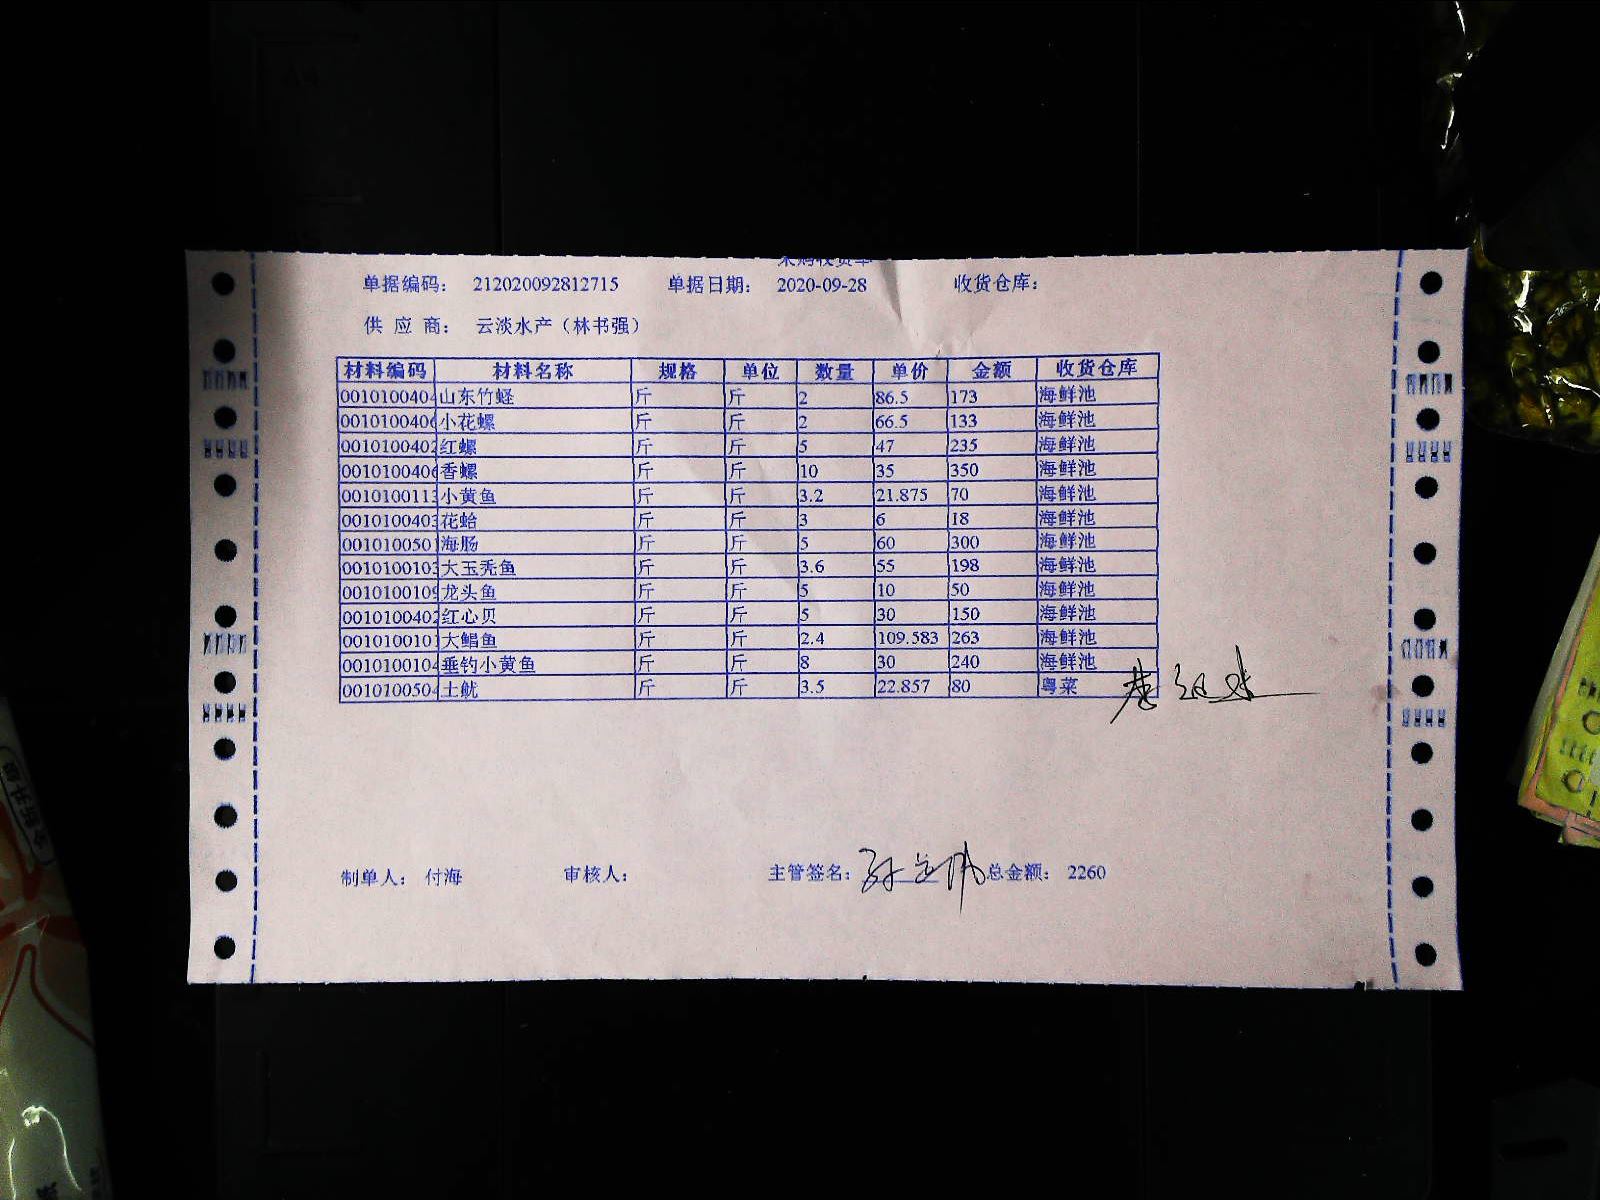 采购收货单
单据编码： 212020092812715 单据日期： 2020-09-28 收货仓库：
供 应 商： 云淡水产（林书强）
材料编码 材料名称 规格 单位 数量 单价 金额 收货仓库
0010100404 山东竹蛏 斤 斤 2 86.5 173 海鲜池
0010100406 小花螺 斤 斤 2 66.5 133 海鲜池
0010100402 红螺 斤 斤 5 47 235 海鲜池
0010100406 香螺 斤 斤 10 35 350 海鲜池
0010100113 小黄鱼 斤 斤 3.2 21.875 70 海鲜池
0010100403 花蛤 斤 斤 3 6 18 海鲜池
0010100501 海肠 斤 斤 5 60 300 海鲜池
0010100103 大玉秃鱼 斤 斤 3.6 55 198 海鲜池
0010100109 龙头鱼 斤 斤 5 10 50 海鲜池
0010100402 红心贝 斤 斤 5 30 150 海鲜池
0010100101 大鲳鱼 斤 斤 2.4 109.583 263 海鲜池
0010100104 垂钓小黄鱼 斤 斤 8 30 240 海鲜池
0010100504 土鱿 斤 斤 3.5 22.857 80 粤菜
制单人： 付海 审核人： 主管签名： 总金额： 2260